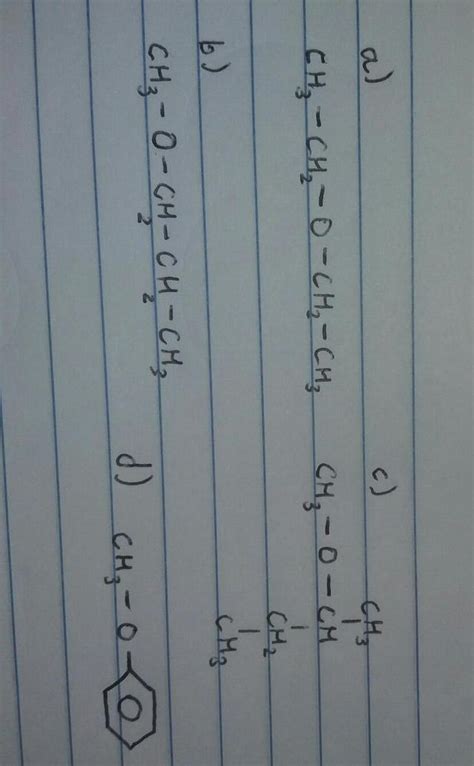 a)
CH₃ – CH₂ – O – CH₂ – CH₃
b)
CH₃ – O – CH₂ – CH₂ – CH₃
c)
CH₃
|
CH₃ – O – CH
|
CH₂
|
CH₃
d)
CH₃ – O –